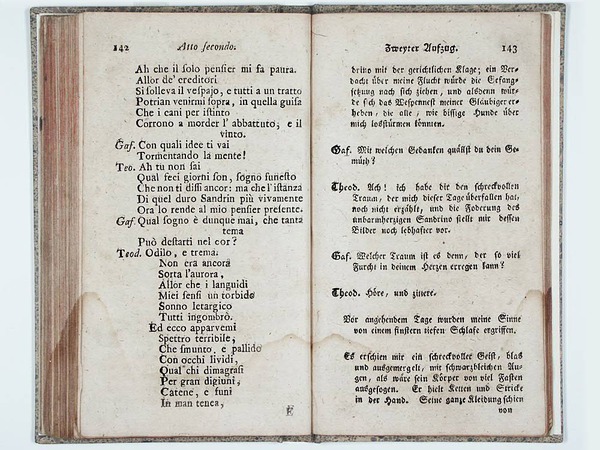 142 Atto secondo.
Ah che il solo pensier mi fa paura.
Allor de' creditori
Si solleva il vespajo, e tutti a un tratto
Potrian venirmi sopra, in quella guisa
Che i cani per istinto
Corrono a morder l' abbattuto; e il
vinto.
Gaf. Con quali idee ti vai
Tormentando la mente!
Teo. Ah tu non sai
Qual feci giorni son, sogno funesto
Che non ti dissi ancor: ma che l'istanza
Di quel duro Sandrin più vivamente
Ora lo rende al mio pensier presente.
Gaf. Qual sogno è dunque mai, che tanta
tema
Può destarti nel cor?
Teod. Odilo, e trema.
Non era ancora
Sorta l'aurora,
Allor che i languidi
Miei sensi un torbido
Sonno letargico
Tutti ingombrò.
Ed ecco apparvemi
Spettro terribile,
Che smunto, e pallido
Con occhi lividi,
Qual chi dimagrasi
Per gran digiuni,
Catene, e funi
In man tenea,
E
Zweyter Aufzug. 143
drino mit der gerichtlichen Klage; ein Ver-
dacht über meine Flucht würde die Gefang-
setzung nach sich ziehen, und alsdenn wür-
de sich das Wespennest meiner Gläubiger er-
heben, die alle, wie bissige Hunde über
mich losstürmen könnten.
Gaf. Mit welchen Gedanken quälst du dein Ge-
müth?
Theod. Ach! ich habe dir den schreckvollen
Traum, der mich dieser Tage überfallen hat,
noch nicht erzählt, und die Foderung des
unbarmherzigen Sandrino stellt mir dessen
Bilder noch lebhafter vor.
Gaf. Welcher Traum ist es denn, der so viel
Furcht in deinem Herzen erregen kann?
Theod. Höre, und zittere.
Vor angehendem Tage wurden meine Sinne
von einem finstern tiefen Schlafe ergriffen.
Es erschien mir ein schreckvoller Geist, blaß
und ausgemergelt, mit schwarzbleichen Au-
gen, als wäre sein Körper von viel Fasten
ausgesogen. Er hielt Ketten und Stricke
in der Hand. Seine ganze Kleidung schien
von